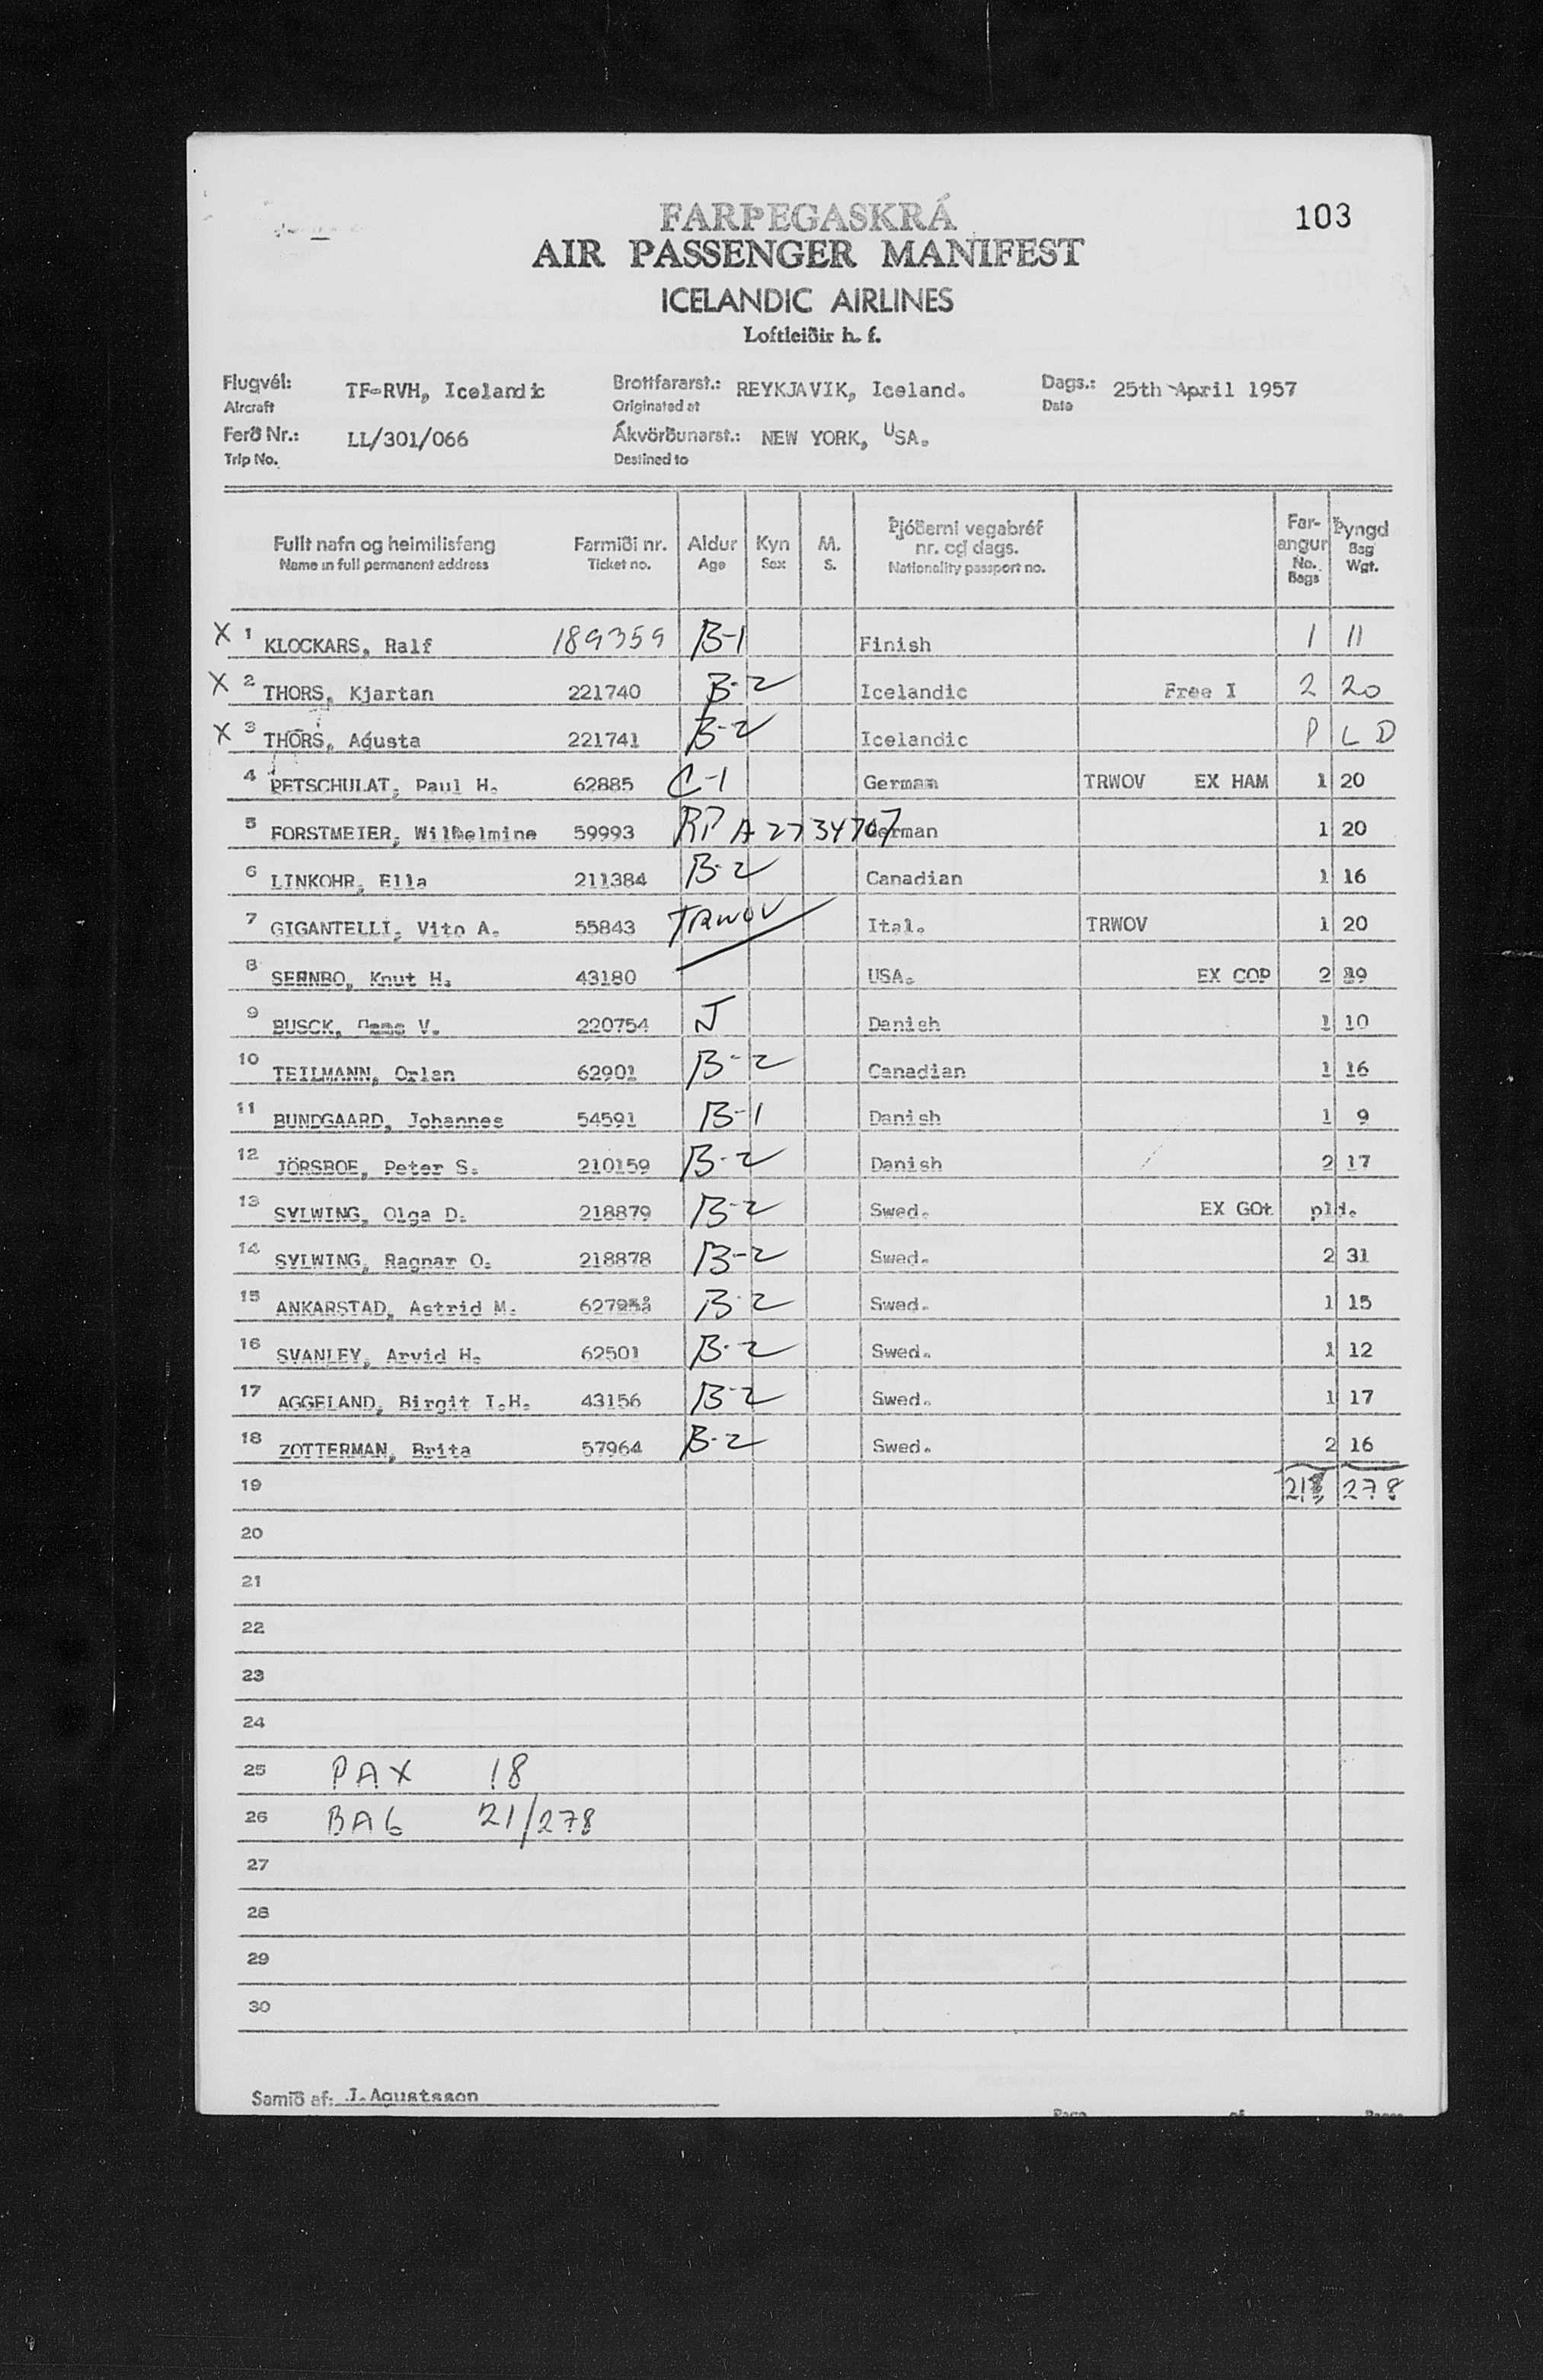 103
FARÞEGASKRÁ
AIR PASSENGER MANIFEST
ICELANDIC AIRLINES
Loftleiðir h. f.
Flugvél: TF-RVH, Icelandic Brottfararst.: REYKJAVIK, Iceland. Dags.: 25th April 1957
Aircraft Originated at Date
Ferð Nr.: LL/301/066 Ákvörðunarst.: NEW YORK, USA.
Trip No. Destined to
Fullt nafn og heimilisfang Farmiði nr. Aldur Kyn M. Þjóðerni vegabréf nr. og dags. Farangur Þyngd
Name in full permanent address Ticket no. Age Sex S. Nationality passport no. No. Bags Bag Wgt.
X 1 KLOCKARS, Ralf 189359 B-1 Finish 1 11
X 2 THORS, Kjartan 221740 B-2 Icelandic Free I 2 20
X 3 THORS, Agústa 221741 B-2 Icelandic P L D
4 PETSCHULAT, Paul H. 62885 C-1 German TRWOV EX HAM 1 20
5 FORSTMEIER, Wilhelmine 59993 RP A2734707 German 1 20
6 LINKOHR, Ella 211384 B-2 Canadian 1 16
7 GIGANTELLI, Vito A. 55843 TRWOV Ital. TRWOV 1 20
8 SERNBO, Knut H. 43180 USA. EX COP 2
9 BUSCK, V. 220754 J Danish 1 10
10 TEILMANN, Orlan 62901 B-2 Canadian 1 16
11 BUNDGAARD, Johannes 54591 B-1 Danish 1 9
12 JÖRSBOE, Peter S. 210159 B-2 Danish 2 17
13 SYLWING, Olga D. 218879 B-2 Swed. EX GOt pld.
14 SYLWING, Ragnar O. 218878 B-2 Swed. 2 31
15 ANKARSTAD, Astrid M. B-2 Swed. 1 15
16 SVANLEY, Arvid H. 62501 B-2 Swed. 1 12
17 AGGELAND, Birgit I.H. 43156 B-2 Swed. 1 17
18 ZOTTERMAN, Brita 57964 B-2 Swed. 2 16
19 278
20
21
22
23
24
25 PAX 18
26 BAG 21/278
27
28
29
30
Samið af: J. Agustsson